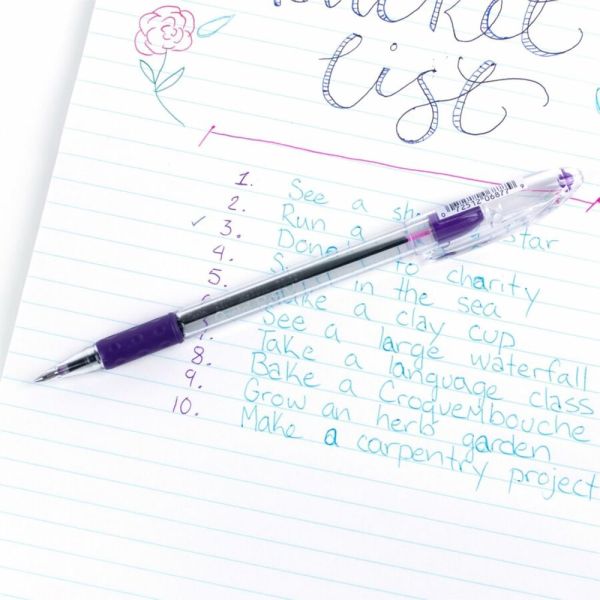 Bucket
list
1. See a star
2. Run a
✓ 3. to charity
4. in the sea
5. a clay cup
See a large waterfall
Take a language class
8. Bake a Croquembouche
9. Grow an herb garden
10. Make a carpentry project
72512 06877